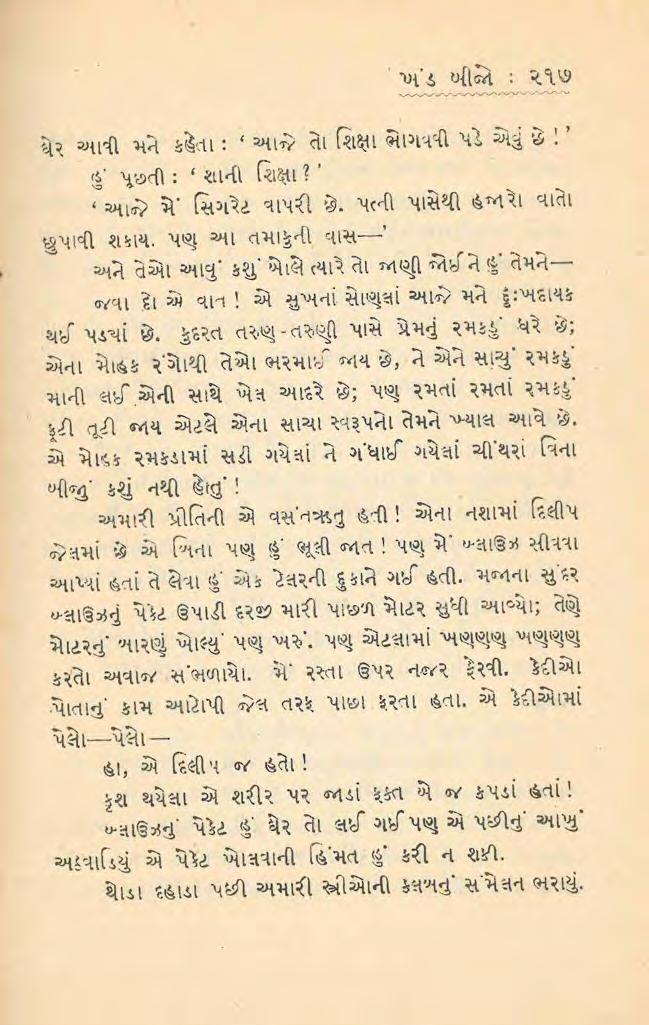 ખંડ બીજો : ૨૧૭
ઘેર આવી મને કહેતા : ‘ આજે તો શિક્ષા ભોગવવી પડે એવું છે !’
હું પૂછતી : ‘ શાની શિક્ષા ? ’
‘ આજે મેં સિગરેટ વાપરી છે. પત્ની પાસેથી હજારો વાતો
છુપાવી શકાય. પણ આ તમાકુની વાસ—’
અને તેઓ આવું કશું બોલે ત્યારે તો જાણી જોઈ ને હું તેમને—
જવા દો એ વાત ! એ સુખનાં સોણલાં આજે મને દુઃખદાયક
થઈ પડ્યાં છે. કુદરત તરુણ - તરુણી પાસે પ્રેમનું રમકડું ધરે છે;
એના મોહક રંગોથી તેઓ ભરમાઈ જાય છે, ને એને સાચું રમકડું
માની લઈ એની સાથે ખેલ આદરે છે; પણ રમતાં રમતાં રમકડું
ફૂટી તૂટી જાય એટલે એના સાચા સ્વરૂપનો તેમને ખ્યાલ આવે છે.
એ મોહક રમકડામાં સડી ગયેલાં ને ગંધાઈ ગયેલાં ચીંથરાં વિના
બીજું કશું નથી હોતું !
અમારી પ્રીતિની એ વસંતઋતુ હતી ! એના નશામાં દિલીપ
જેલમાં છે એ બિના પણ હું ભૂલી જાત ! પણ મેં બ્લાઉઝ સીવવા
આપ્યાં હતાં તે લેવા હું એક ટેલરની દુકાને ગઈ હતી. મજાના સુંદર
બ્લાઉઝનું પેકેટ ઉપાડી દરજી મારી પાછળ મોટર સુધી આવ્યો; તેણે
મોટરનું બારણું ખોલ્યું પણ ખરું. પણ એટલામાં ખણણણ ખણણણ
કરતો અવાજ સંભળાયો. મેં રસ્તા ઉપર નજર ફેરવી. કેદીઓ
પોતાનું કામ આટોપી જેલ તરફ પાછા ફરતા હતા. એ કેદીઓમાં
પેલો—પેલો—
હા, એ દિલીપ જ હતો !
કૃશ થયેલા એ શરીર પર જાડાં ફક્ત બે જ કપડાં હતાં !
બ્લાઉઝનું પેકેટ હું ઘેર તો લઈ ગઈ પણ એ પછીનું આખું
અઠવાડિયું એ પેકેટ ખોલવાની હિંમત હું કરી ન શકી.
થોડા દહાડા પછી અમારી સ્ત્રીઓની કલબનું સંમેલન ભરાયું.